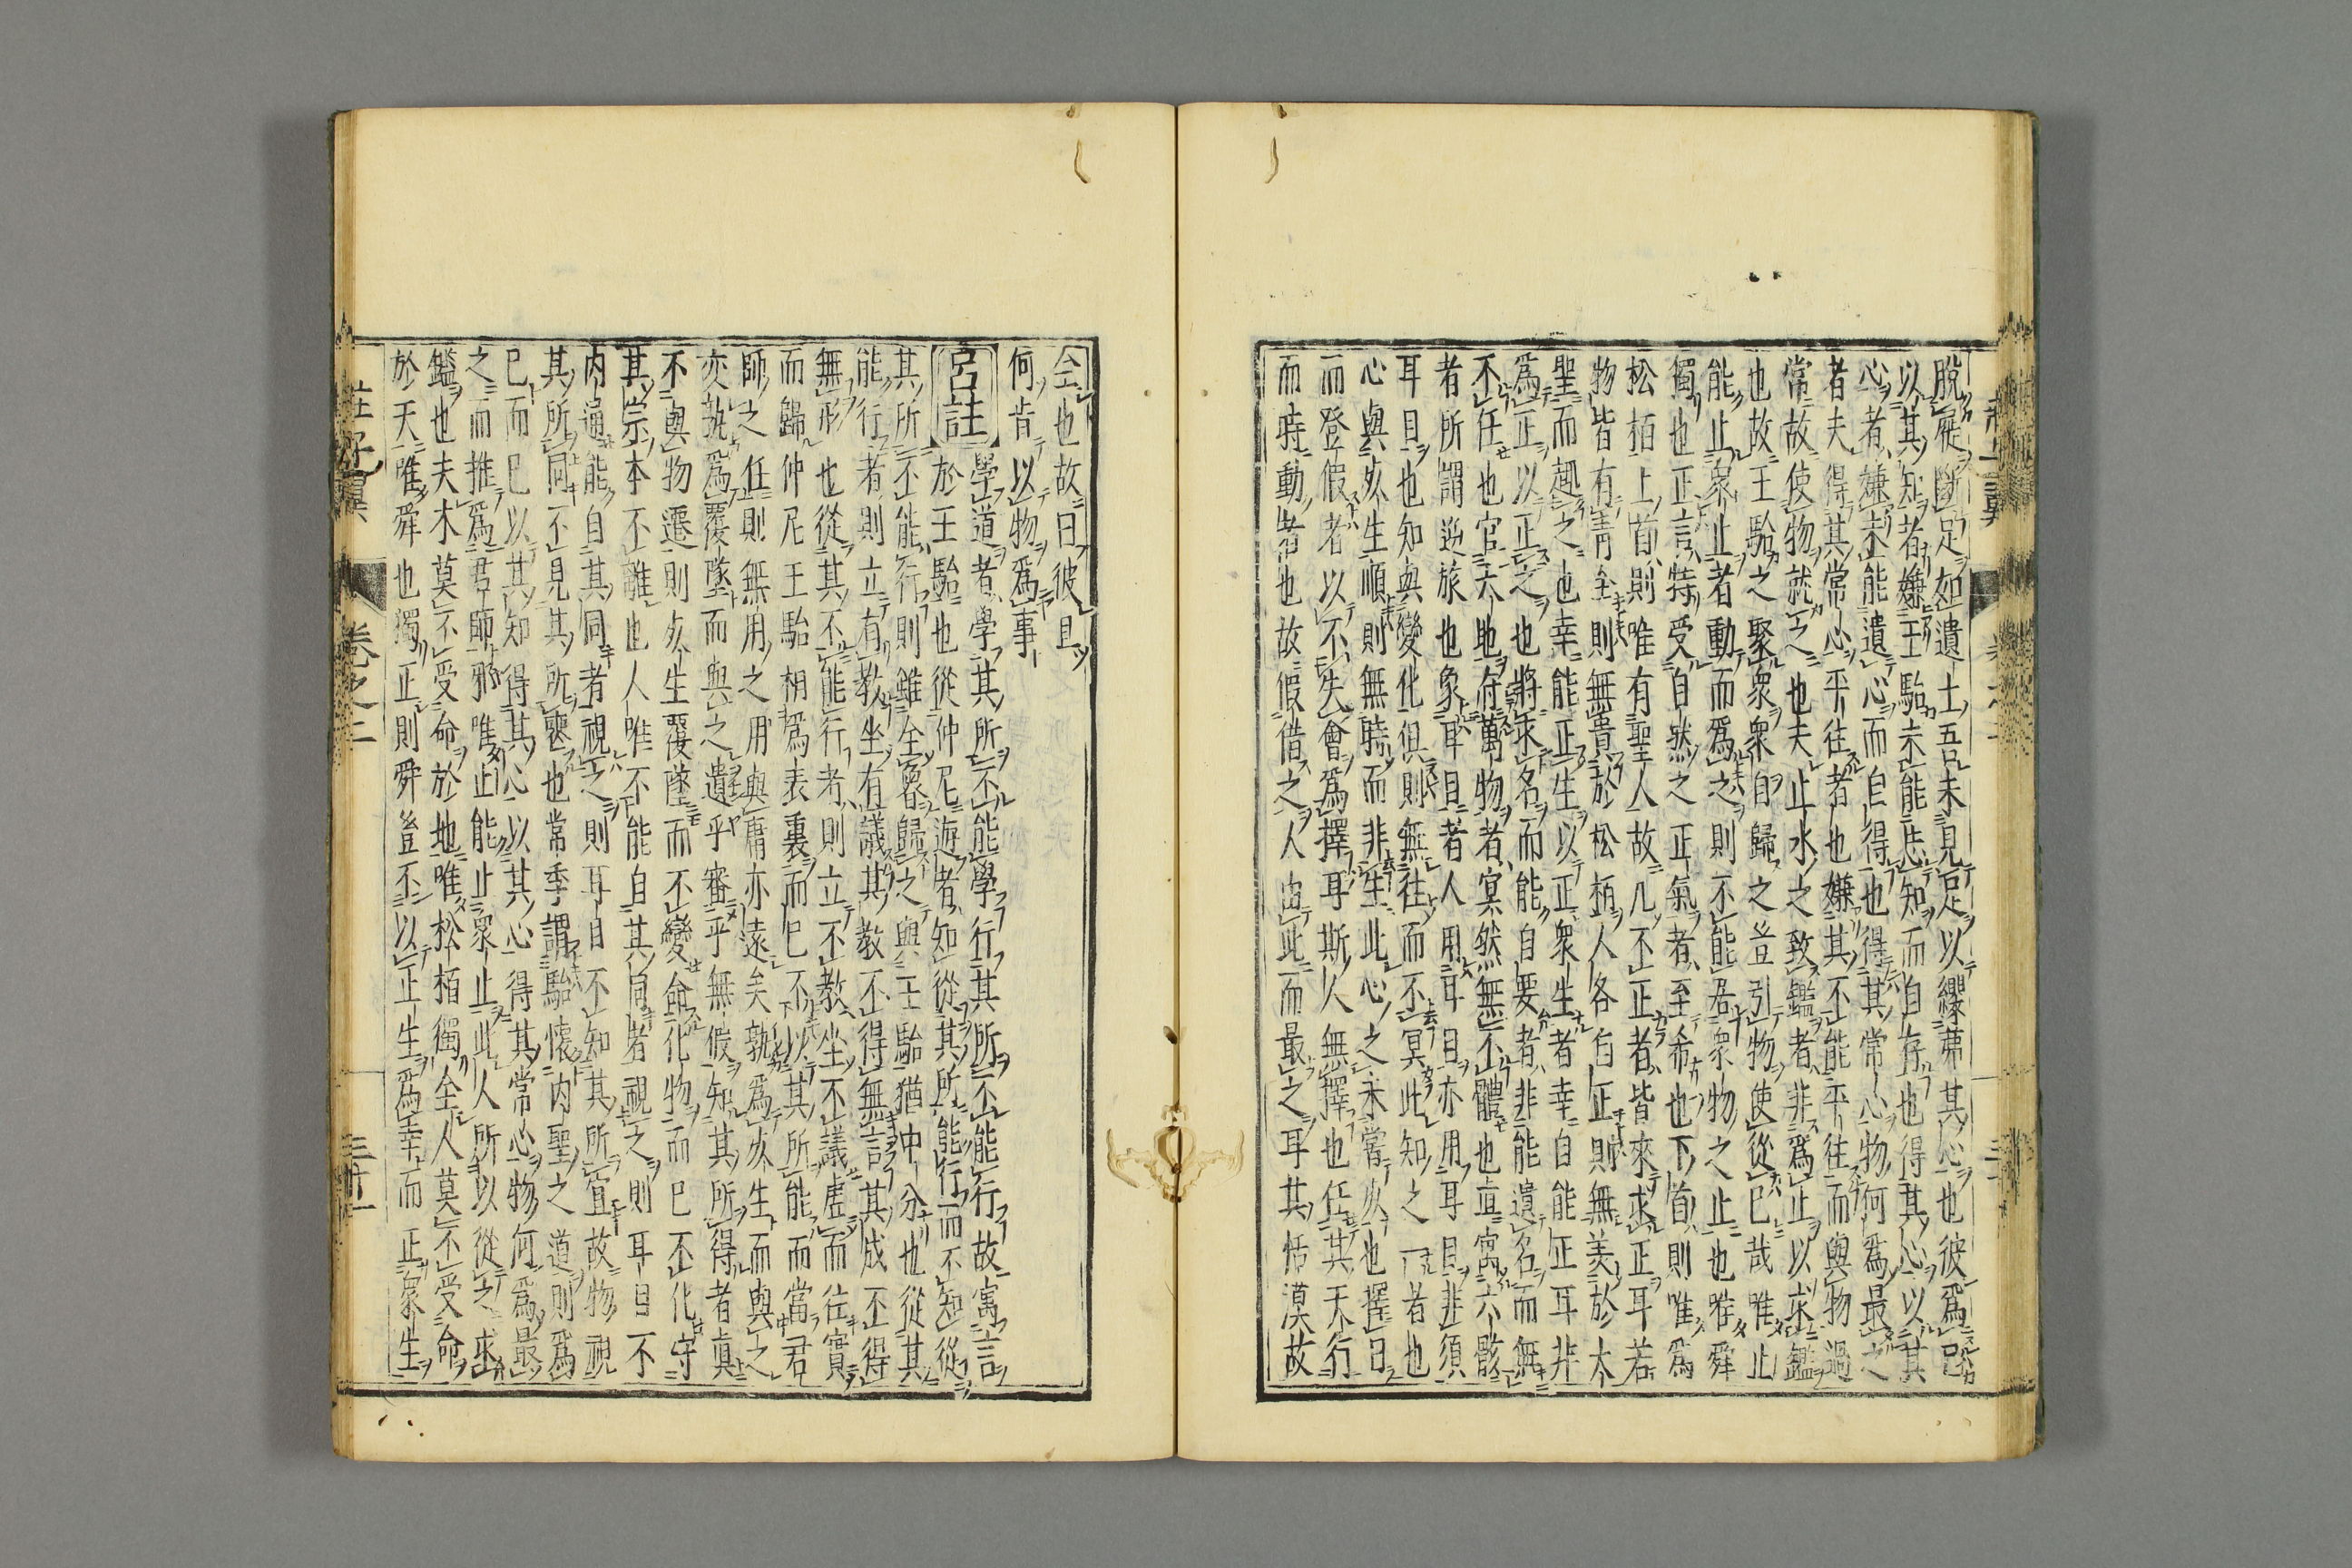 脫屣斷足如遺土吾未見足以纓茀其心也彼爲己
以其知者嫌王駘未能忘知而自存也得其心以其
心者嫌未能遺心而自得也得其常心物何爲最之
者夫得其常心平往者也嫌其不能平往而與物過
常故使物就之也夫止水之致鑑者非爲止以求鑑
也故王駘之聚衆衆自歸之豈引物使從已哉唯止
能止衆止者動而爲之則不能居衆物之止也唯舜
獨也正言特受自然之正氣者至希也下首則唯爲
松栢上首則唯有聖人故凡不正者皆來求正耳若
物皆有靑全則無貴於松栢人各自正則無美於大
聖而趣之也幸能正生以正衆生者幸自能正耳非
爲正以正之也將求名而能自要者非能遺名而無
不任也官天地府萬物者冥然無不體也直寓六骸
者所謂逆旅也象耳目者人用耳目亦用耳目非須
耳目也知與變化俱則無往而不冥此知之一者也
心與死生順則無時而非生此心之未嘗死也擇日
而登假者以不失會爲擇耳斯人無擇也任其天行
而時動者也故假借之人由此而最之耳其恬漠故
全也故曰彼且
何肯以物爲事
呂註 學道者學其所不能學行其所不能行故寓言
於王駘也從仲尼遊者知從其所能行而不知從
其所不能行則雖全魯歸之與王駘猶中分也從其
能行者則立有教坐有議其教不得無言其成不得
無形也從其不能行者則立不教坐不議虛而往實
而歸仲尼王駘相爲表裏而已不以其所能而當君
師之任則無用之用與庸亦遠矣孰爲死生而與之
変孰爲覆墜而與之遺乎審乎無假知其所得者眞
不與物遷則死生覆墜而不變命化物而已不化守
其宗本不離也人唯不能自其同者視之則耳目不
內通能自其同者視之則耳目不知其所宜故物視
其所同不見其所喪也常季謂駘懷內聖之道則爲
已而已以其知得其心以其心得其常心物何爲最
之而推爲君師邪唯止能止衆止此人所以從之求
鑑也夫木莫不受命於地唯松栢獨全人莫不受命
於天唯舜也獨正則舜豈不以正生爲幸而正衆生
莊子翼 卷之二